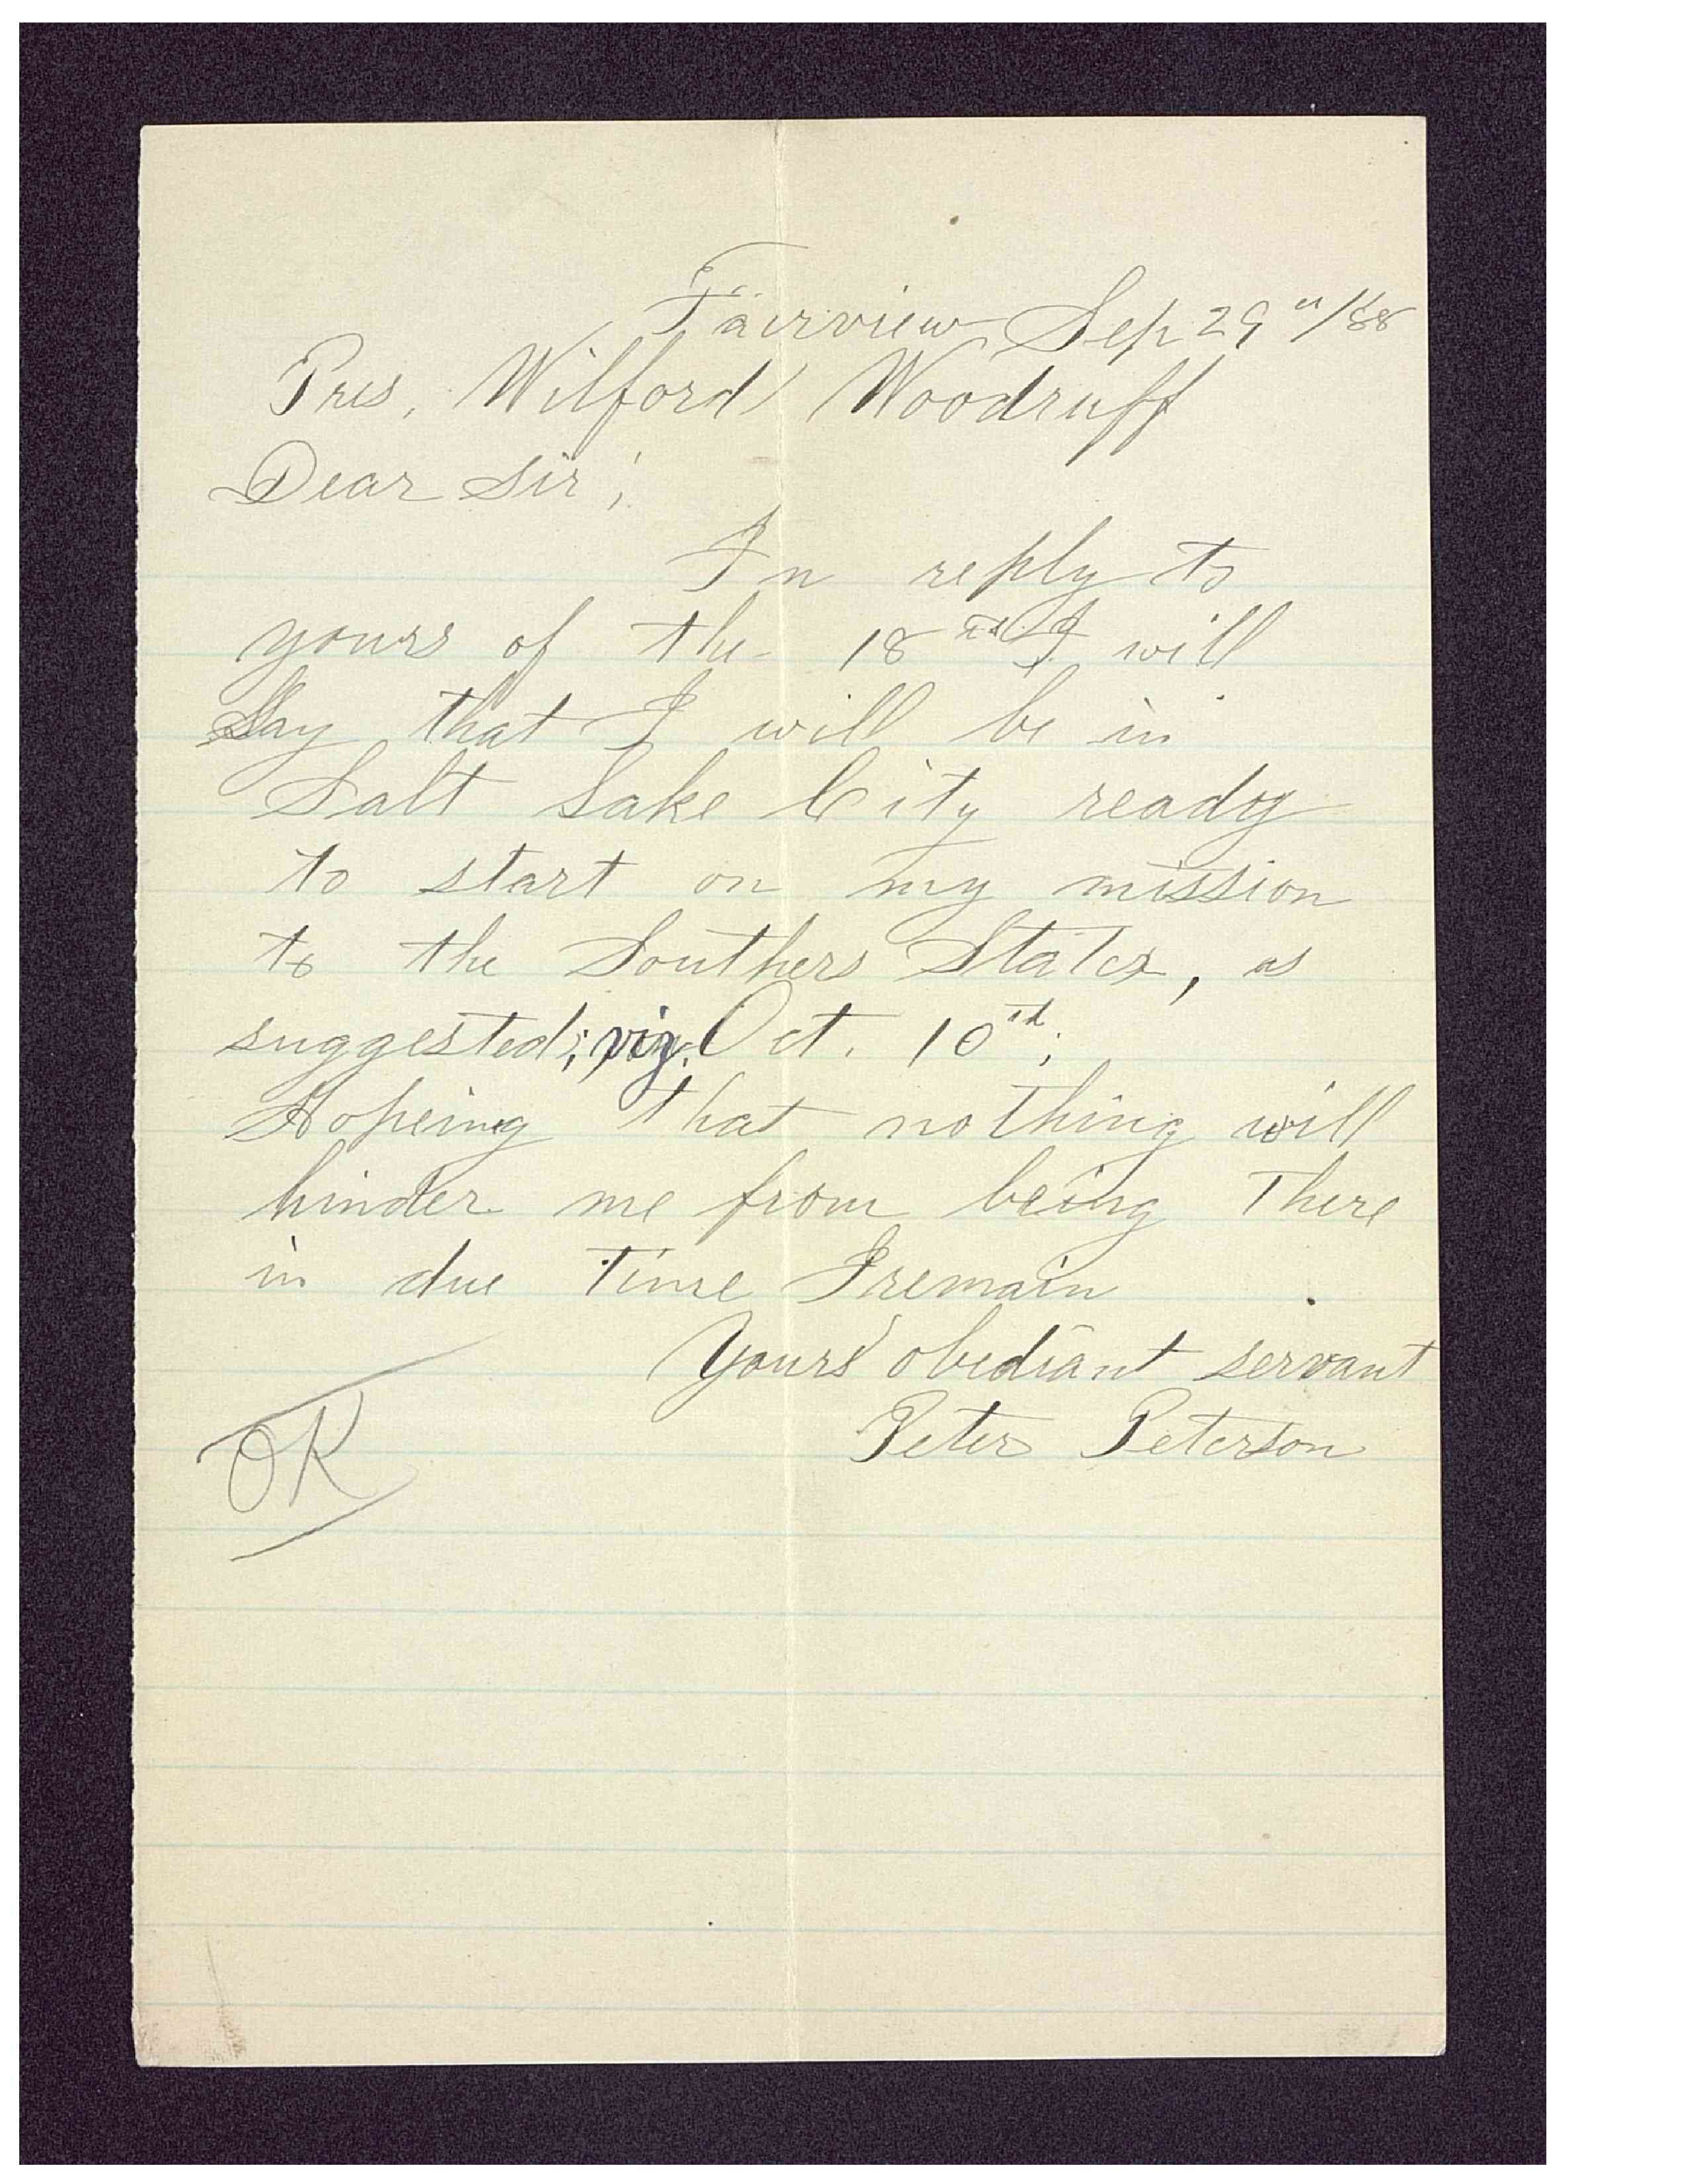 Fairview Sep 29th/88
Pres. Wilford Woodruff
Dear Sir;
In reply to
yours of the 18th I will
Say that I will be in
Salt Lake City ready
to start on my mission
to the Southern States, as
suggested; viz. Oct. 10th;
Hopeing that nothing will
hinder me from being There
in due Time I remain
Yours obediant servant
Peter Peterson
OK